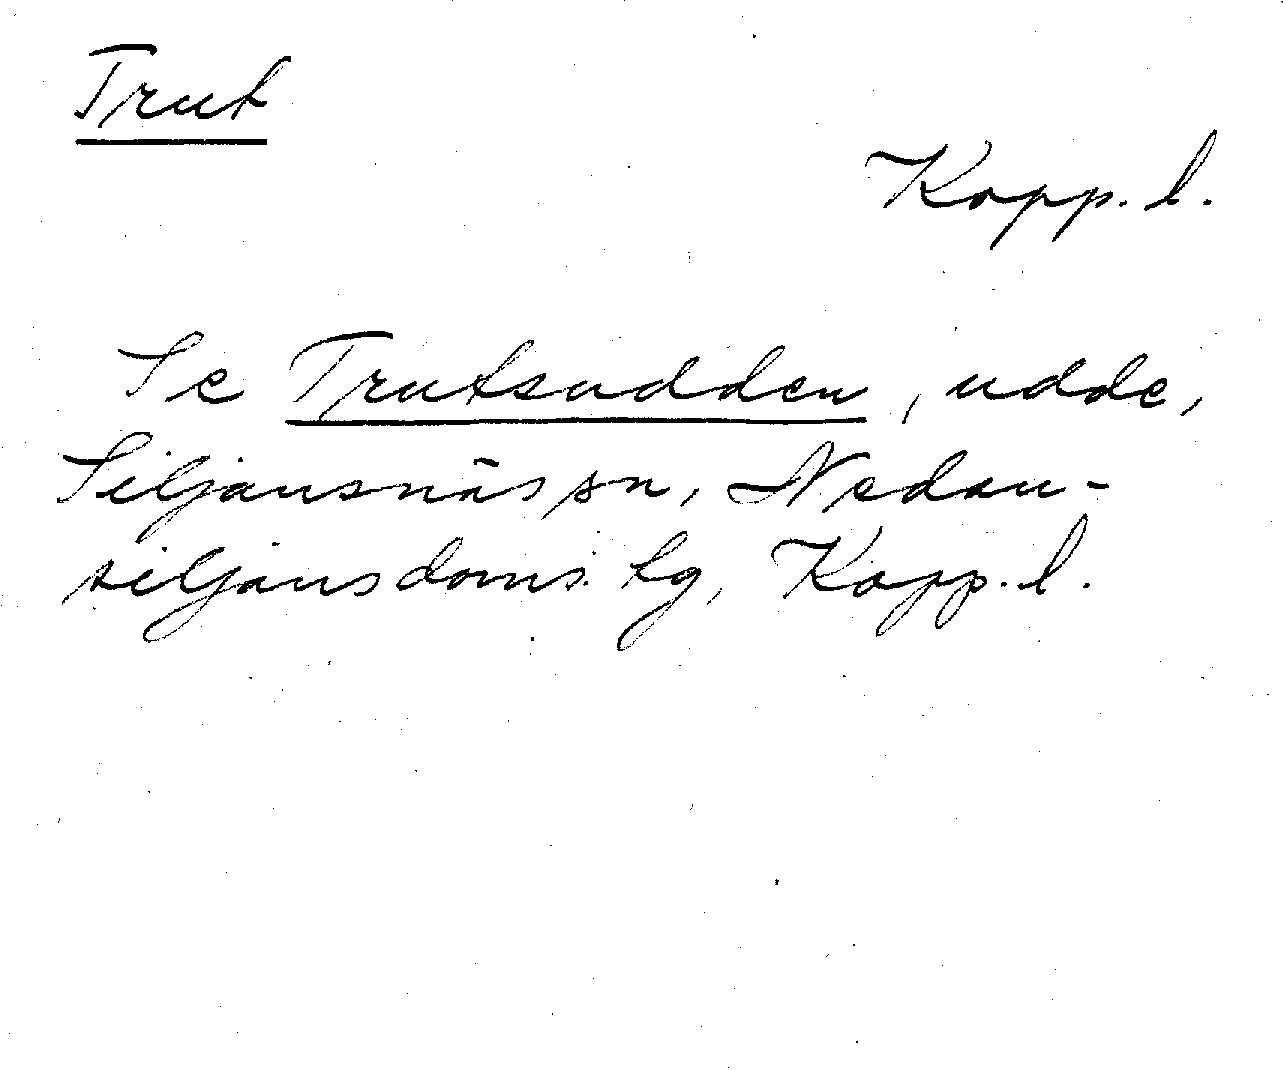 Trut
Kopp. l.
Se Trutsudden, udde,
Siljansnäs sn, Nedan-
siljansdoms. tg, Kopp. l.